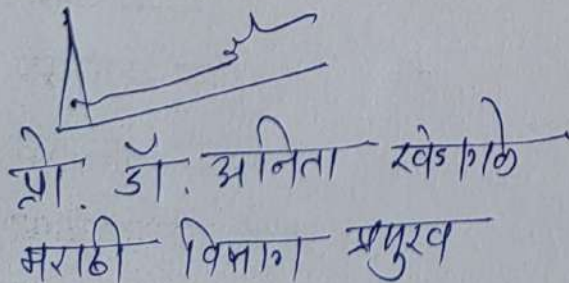 प्रो. डॉ. अनिता खेडगळे
मराठी विभाग प्रमुख